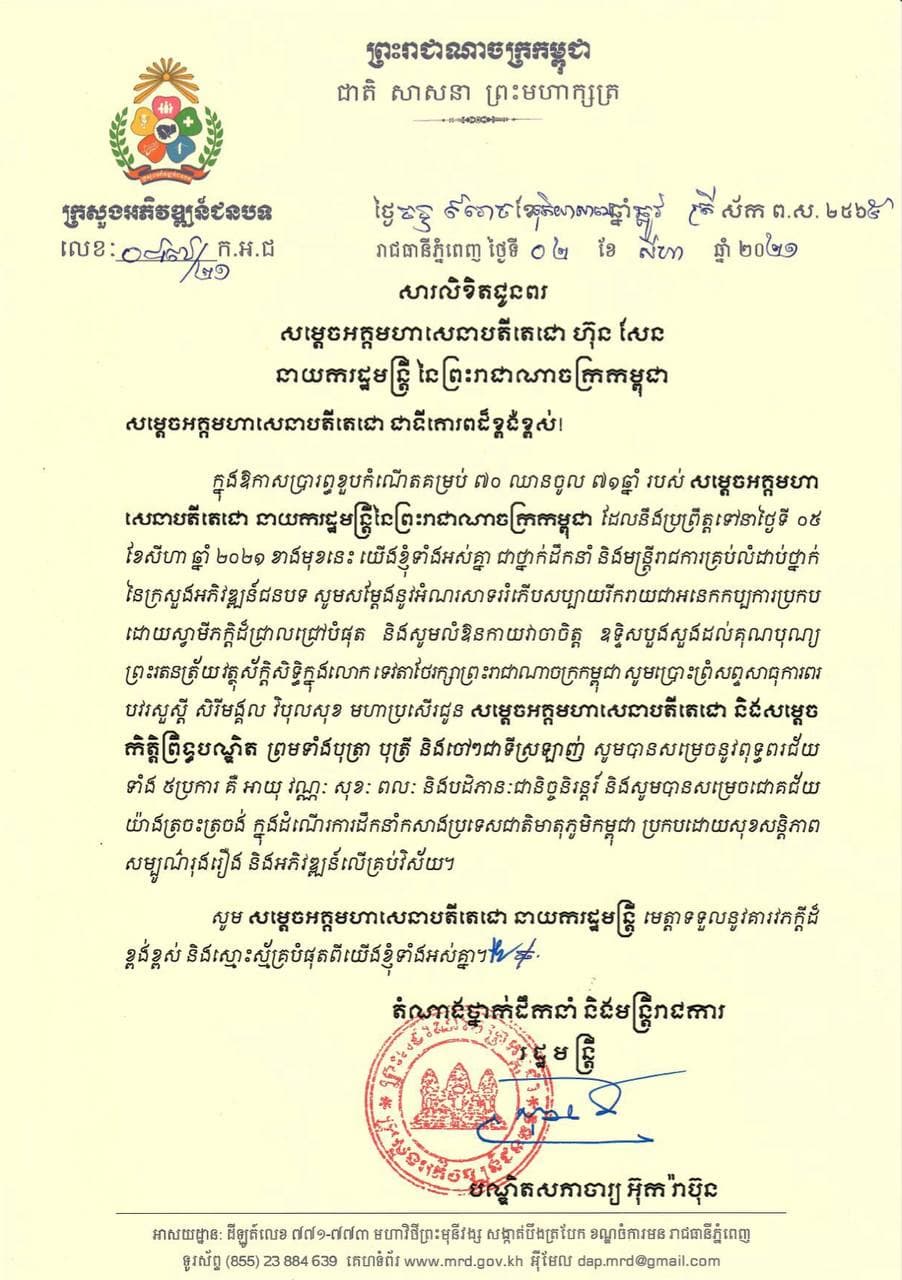 ព្រះរាជាណាចក្រកម្ពុជា
ជាតិ សាសនា ព្រះមហាក្សត្រ
ក្រសួងអភិវឌ្ឍន៍ជនបទ
លេខ: ០៨៧/២១ ក.អ.ជ
ថ្ងៃ ៩រោច ខែ ឆ្នាំឆ្លូវ ត្រីស័ក ព.ស. ២៥៦៥
រាជធានីភ្នំពេញ ថ្ងៃទី ០២ ខែ សីហា ឆ្នាំ ២០២១
សារលិខិតជូនពរ
សម្តេចអគ្គមហាសេនាបតីតេជោ ហ៊ុន សែន
នាយករដ្ឋមន្ត្រី នៃព្រះរាជាណាចក្រកម្ពុជា
សម្តេចអគ្គមហាសេនាបតីតេជោ ជាទីគោរពដ៏ខ្ពង់ខ្ពស់!
ក្នុងឱកាសប្រារព្ធខួបកំណើតគម្រប់ ៧០ ឈានចូល ៧១ឆ្នាំ របស់ សម្តេចអគ្គមហា
សេនាបតីតេជោ នាយករដ្ឋមន្ត្រីនៃព្រះរាជាណាចក្រកម្ពុជា ដែលនឹងប្រព្រឹត្តទៅនាថ្ងៃទី ០៥
ខែសីហា ឆ្នាំ ២០២១ ខាងមុខនេះ យើងខ្ញុំទាំងអស់គ្នា ជាថ្នាក់ដឹកនាំ និងមន្ត្រីរាជការគ្រប់លំដាប់ថ្នាក់
នៃក្រសួងអភិវឌ្ឍន៍ជនបទ សូមសម្តែងនូវអំណរសាទររំភើបសប្បាយរីករាយជាអនេកកប្បការប្រកប
ដោយស្វាមីភក្តិដ៏ជ្រាលជ្រៅបំផុត និងសូមលំឱនកាយវាចាចិត្ត ឧទ្ទិសបួងសួងដល់គុណបុណ្យ
ព្រះរតនត្រ័យវត្ថុស័ក្តិសិទ្ធិក្នុងលោក ទេវតាថែរក្សាព្រះរាជាណាចក្រកម្ពុជា សូមប្រោះព្រំសព្ទសាធុការពរ
បវរសួស្តី សិរីមង្គល វិបុលសុខ មហាប្រសើរជូន សម្តេចអគ្គមហាសេនាបតីតេជោ និងសម្តេច
កិត្តិព្រឹទ្ធបណ្ឌិត ព្រមទាំងបុត្រា បុត្រី និងចៅៗជាទីស្រឡាញ់ សូមបានសម្រេចនូវពុទ្ធពរជ័យ
ទាំង ៥ប្រការ គឺ អាយុ វណ្ណៈ សុខៈ ពលៈ និងបដិភានៈជានិច្ចនិរន្តរ៍ និងសូមបានសម្រេចជោគជ័យ
យ៉ាងត្រចះត្រចង់ ក្នុងដំណើរការដឹកនាំកសាងប្រទេសជាតិមាតុភូមិកម្ពុជា ប្រកបដោយសុខសន្តិភាព
សម្បូណ៌រុងរឿង និងអភិវឌ្ឍន៍លើគ្រប់វិស័យ។
សូម សម្តេចអគ្គមហាសេនាបតីតេជោ នាយករដ្ឋមន្ត្រី មេត្តាទទួលនូវគារវភក្តីដ៏
ខ្ពង់ខ្ពស់ និងស្មោះស្ម័គ្របំផុតពីយើងខ្ញុំទាំងអស់គ្នា។
តំណាងថ្នាក់ដឹកនាំ និងមន្ត្រីរាជការ
រដ្ឋមន្ត្រី
បណ្ឌិតសភាចារ្យ អ៊ុក រ៉ាប៊ុន
អាសយដ្ឋាន: ដីឡូត៍លេខ ៧៧១-៧៧៣ មហាវិថីព្រះមុនីវង្ស សង្កាត់បឹងត្របែក ខណ្ឌចំការមន រាជធានីភ្នំពេញ
ទូរស័ព្ទ (855) 23 884 639 គេហទំព័រ www.mrd.gov.kh អ៊ីមែល dap.mrd@gmail.com